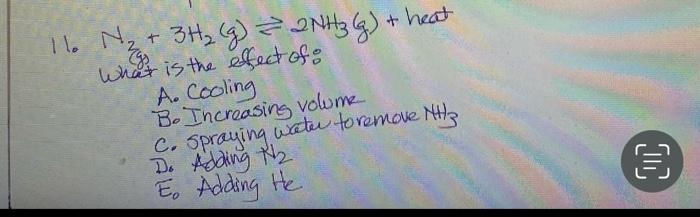 11. N₂ + 3H₂ (g) ⇌ 2NH₃ (g) + heat
(g)
What is the effect of:
A. Cooling
B. Increasing volume
C. Spraying water to remove NH₃
D. Adding N₂
E. Adding He